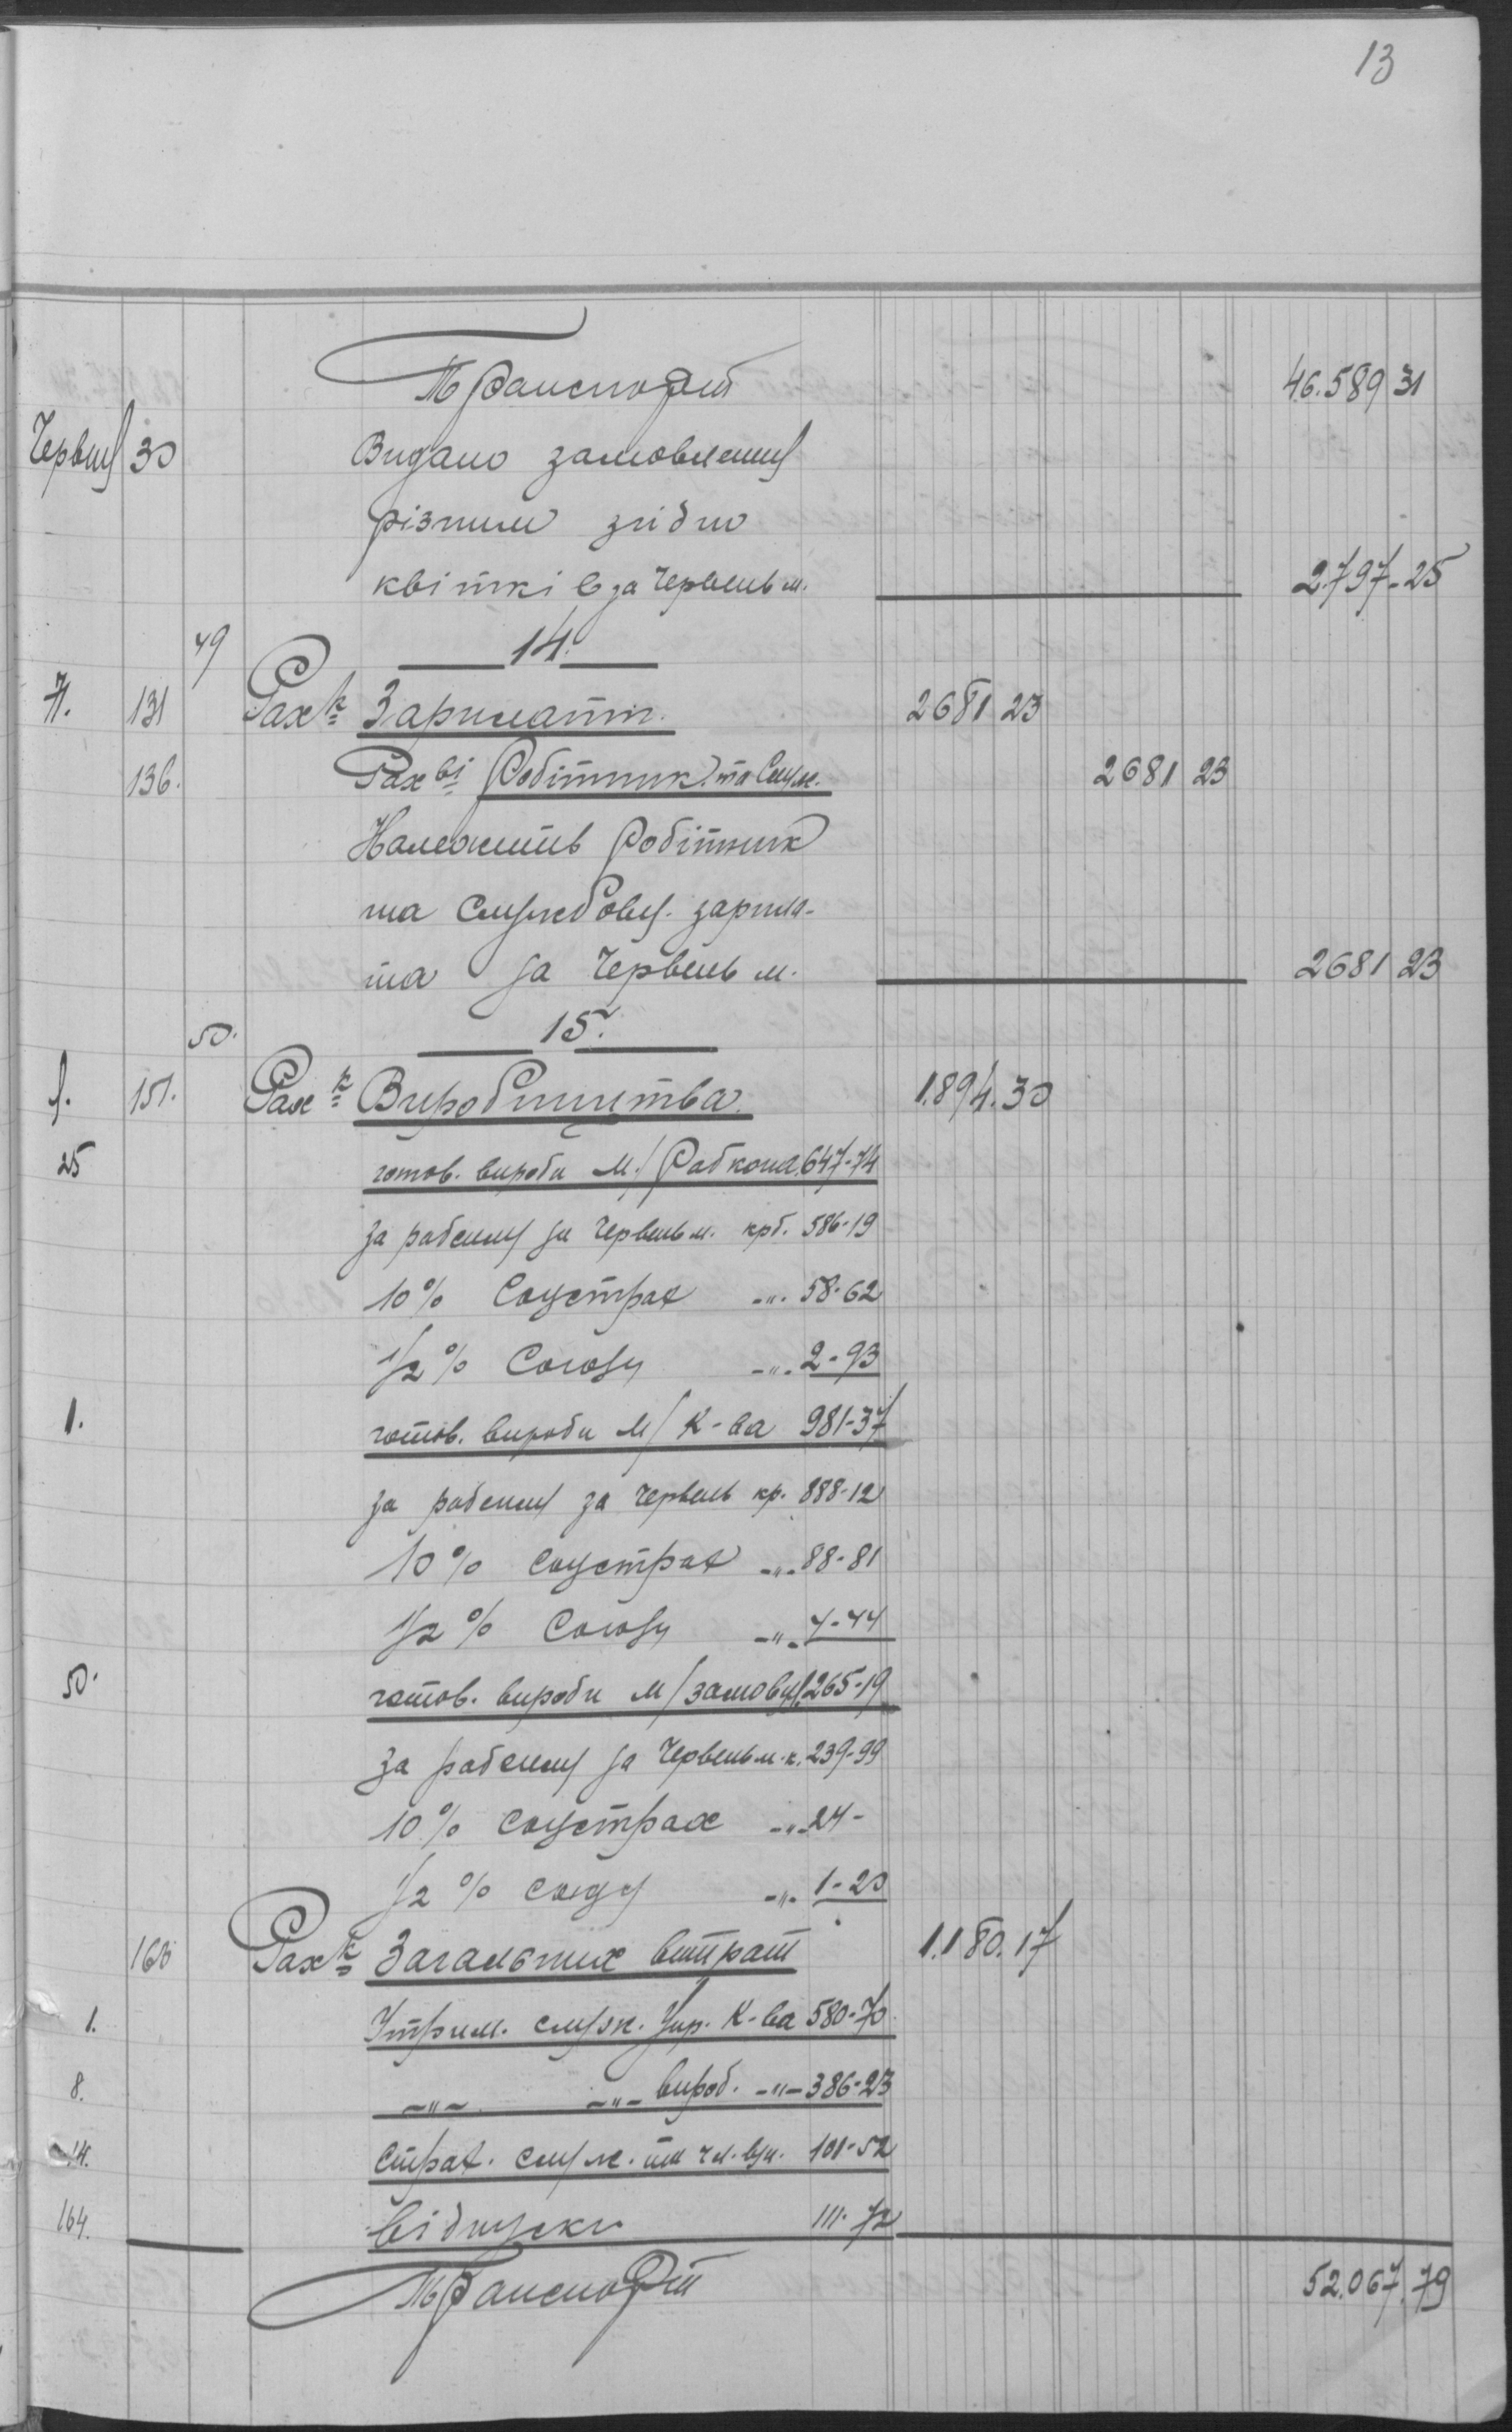 13
Транспорт 46.589 31
Червня 30 Видано замовлення
різними згідно
квітків за Червень м. 2.797-25
49 14.
7. 131 Рах-к Зарплатт. 2681 23
136. Рах-ві Робітник. та Служ. 2681 23
Належить робітник
та службовц. зарпла-
та за Червень м. 2681 23
50. 15.
151. Рах-к Виробництва 1.894.30
25 готов. вироби М/Рабкопа 647-74
за работу за Червень м. крб. 586-19
10% Соцстрах -"- 58-62
1/2% Союзу -"- 2-93
1. готов. вироби М/К-ва 981-37
за работу за Червень кр. 888-12
10% соцстрах -"- 88-81
1/2% Союзу -"- 4-44
50. готов. вироби М/замовц. 265-19
за работу за Червень м. к. 239-99
10% соцстрах -"- 24-
1/2% союзу -"- 1-20
163 Рах-к Загальних витрат 1.180.17
1. Утрим. служ. Упр. К-ва 580-70
8. -"- -"- вироб. -"- 386-23
14. Страх. служ. та 101-52
164. Відпуски 111-72
Транспорт 52.067.79